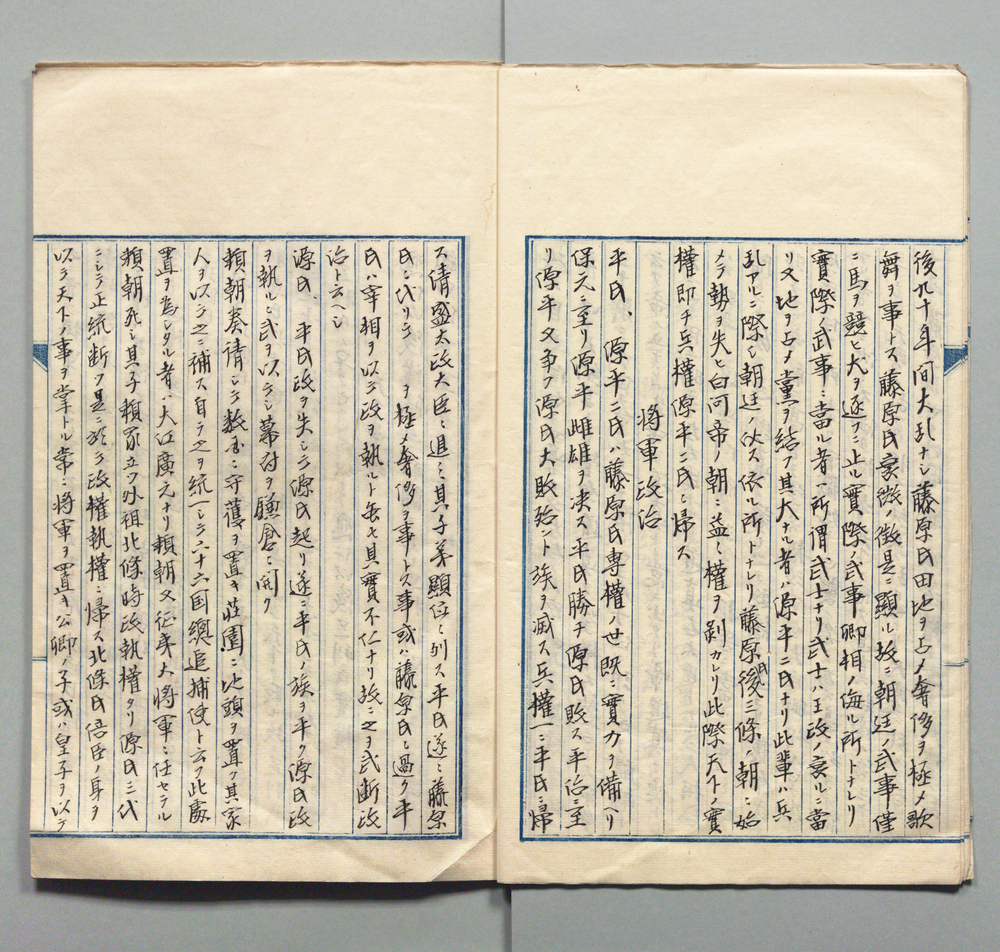 後九十年間大乱ナシ藤原氏田地ヲ占メ奢侈ヲ極メ歌
舞ヲ事トス藤原氏衰微ノ徴是ニ顕ル故ニ朝廷ノ武事僅
ニ馬ヲ競ヒ犬ヲ逐フニ止ル實際ノ武事卿相ノ侮ル所トナレリ
實際ノ武事ニ當ル者ハ所謂武士ナリ武士ハ王政ノ衰ルニ當
リ又地ヲ占メ黨ヲ結フ其大ナル者ハ源平二氏ナリ此輩ハ兵
乱アルニ際シ朝廷ノ仗ス依ル所トナレリ藤原後三條ノ朝ニ始
メテ勢ヲ失ヒ白河帝ノ朝ニ益々權ヲ剥カレリ此際天下ノ實
權即チ兵權源平二氏ニ帰ス
將軍政治
平氏、源平二氏ハ藤原氏専權ノ世既ニ實力ヲ備ヘリ
保元ニ至リ源平雌雄ヲ决ス平氏勝チ源氏敗ス平治ニ至
リ源平又争フ源氏大敗殆ント族ヲ滅ス兵權一ニ平氏ニ帰
ス清盛太政大臣ニ進ミ其子弟顕位ニ列ス平氏遂ニ藤原
氏ニ代リテ ヲ極メ奢侈ヲ事トス事或ハ藤原氏ニ過ク平
氏ハ宰相ヲ以テ政ヲ執ルト雖モ其實不仁ナリ故ニ之ヲ武断政
治ト云ヘシ
源氏、平氏政ヲ失シテ源氏起リ遂ニ平氏ノ族ヲ平ク源氏政
ヲ執ルニ武ヲ以テシ幕府ヲ鎌倉ニ開ク
頼朝奏請シテ数国ニ守護ヲ置キ荘園ニ地頭ヲ置ク其家
人ヲ以テ之ニ補ス自ラ之ヲ統一シテ六十六国總追捕使ト云フ此處
置ヲ為シタル者ハ大江廣元ナリ頼朝又征夷大將軍ニ任セラル
頼朝死シ其子頼家立ツ外祖北條時政執權タリ源氏三代
ニシテ正統断フ是ニ於テ政權執權ニ帰ス北條氏陪臣ノ身ヲ
以テ天下ノ事ヲ掌トル常ニ將軍ヲ置キ公卿ノ子或ハ皇子ヲ以テ